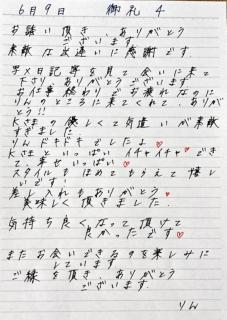 6月9日 御礼 4
お誘い頂き、ありがとう
ございます
素敵な出逢いに感謝です
写メ日記等を見て会いに来て
下さり、ありがとうございます
お仕事終わりでお疲れなのに
りんのところに来てくれて、ありが
とう!!
Kさまの優しくて気遣いが素敵
すぎました
りんドキドキでしたよ♥
Kさまといっぱいイチャイチャ♥でき
て、幸せいっぱい♥
スタイルもほめてもらえて嬉し
いです!
差し入れもありがとう♥
美味しく頂きました
気持ち良くなって頂けて
良かったです♥
またお会いできるのを楽しみに
しています
ご縁を頂き、ありがとう
ございます
りん